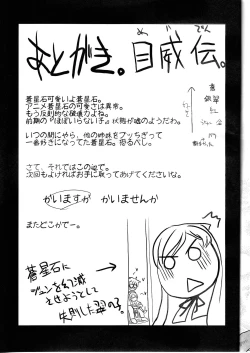 あとがき。目威伝。
蒼星石可愛いよ蒼星石。
アニメ蒼星石の可愛さは異常。
もう反則的な破壊力よね。
前期の『ほぼいらない子』状態が嘘のようだわ。
いつの間にやら、他の姉妹をブッちぎって
一番好きになってた蒼星石。恐るべし。
さて、それではこの辺で。
次回もよければお手に取ってあげてくださいな。
かいますか　かいませんか
またどこかでー。
蒼星石に
ジュンを
させようとして
失敗した翠の子。